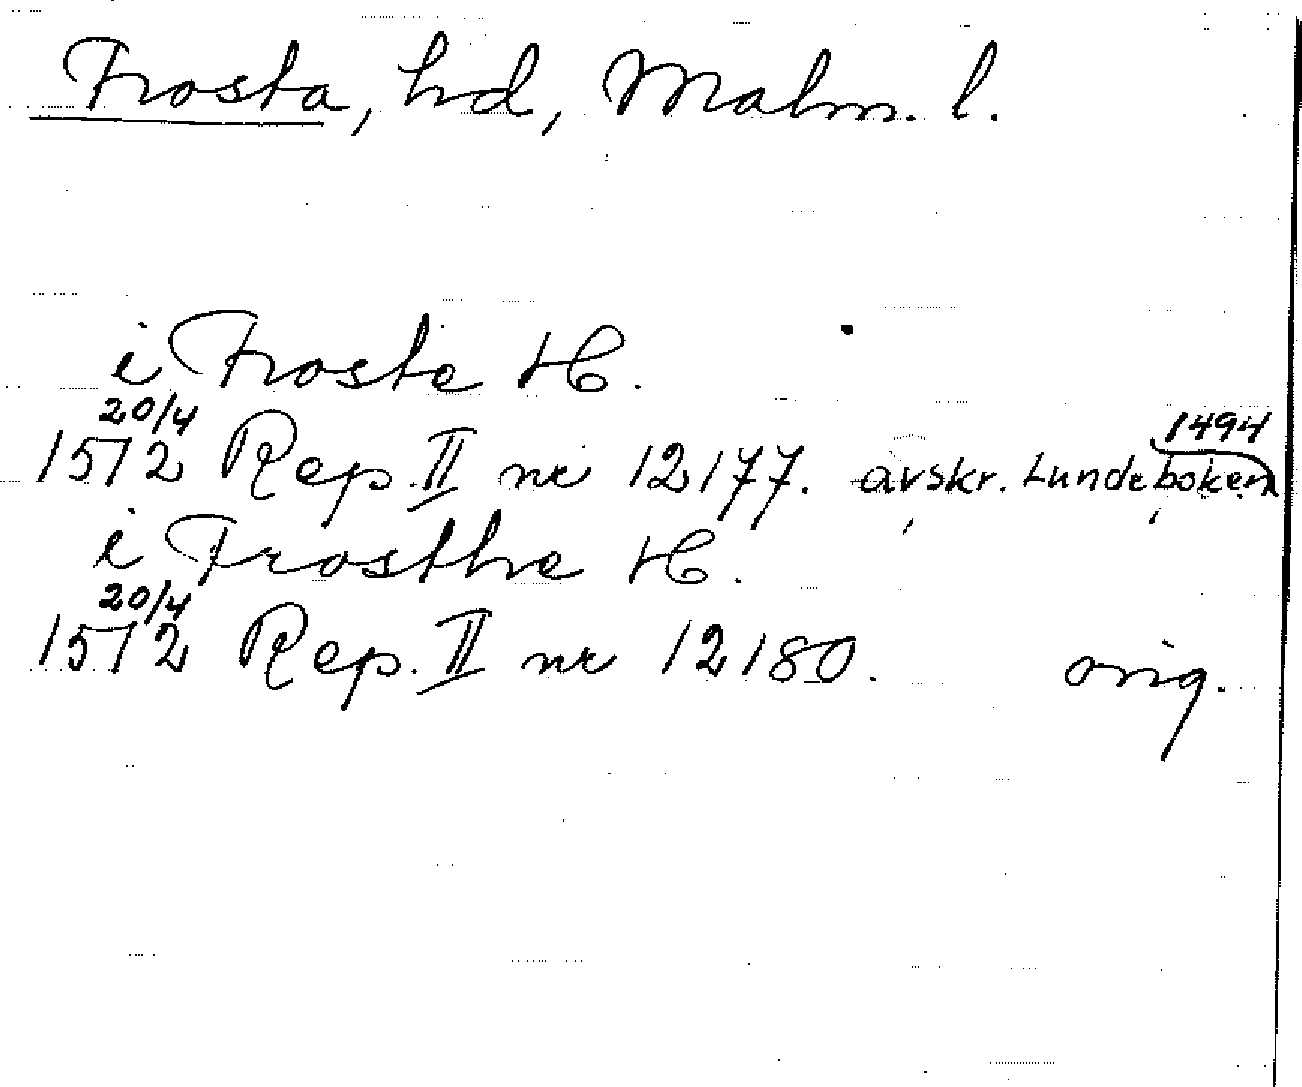 Frosta, hd, Malm. l.
i Froste H.
20/4
1512 Rep. II nr 12177. avskr. Lundeboken 1494
i Frosthe H.
20/4
1512 Rep. II nr 12180. orig.